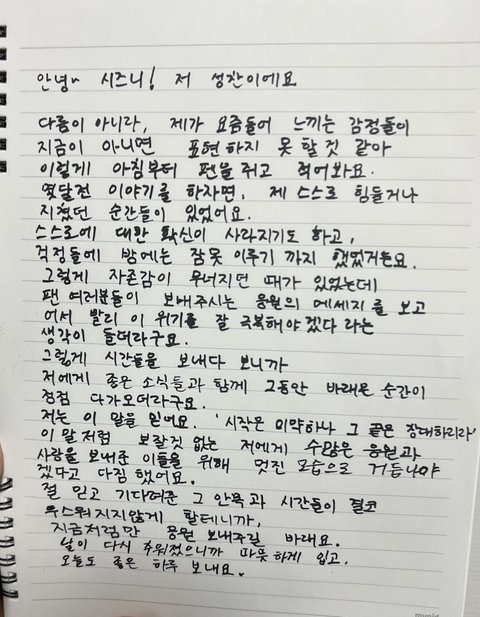 안녕~ 시즈니! 저 성찬이에요
다름이 아니라, 제가 요즘들어 느끼는 감정들이
지금이 아니면 표현하지 못 할 것 같아
이렇게 아침부터 펜을 쥐고 적어봐요.
몇달전 이야기를 하자면, 제 스스로 힘들거나
지쳤던 순간들이 있었어요.
스스로에 대한 확신이 사라지기도 하고,
걱정들에 밤에는 잠못 이루기 까지 했었거든요.
그렇게 자존감이 무너지던 때가 있었는데
팬 여러분들이 보내주시는 응원의 메세지를 보고
어서 빨리 이 위기를 잘 극복해야겠다 라는
생각이 들더라구요.
그렇게 시간들을 보내다 보니까
저에게 좋은 소식들과 함께 그동안 바래온 순간이
점점 다가오더라구요.
저는 이 말을 믿어요. '시작은 미약하나 그 끝은 창대하리라'
이 말처럼 보잘것 없는 저에게 수많은 응원과
사랑을 보내준 이들을 위해 멋진 모습으로 거듭나야
겠다고 다짐했어요.
절 믿고 기다려준 그 안목과 시간들이 결코
우스워지지않게 할테니까,
지금처럼만 응원 보내주길 바래요.
날이 다시 추워졌으니까 따뜻하게 입고,
오늘도 좋은 하루 보내요.